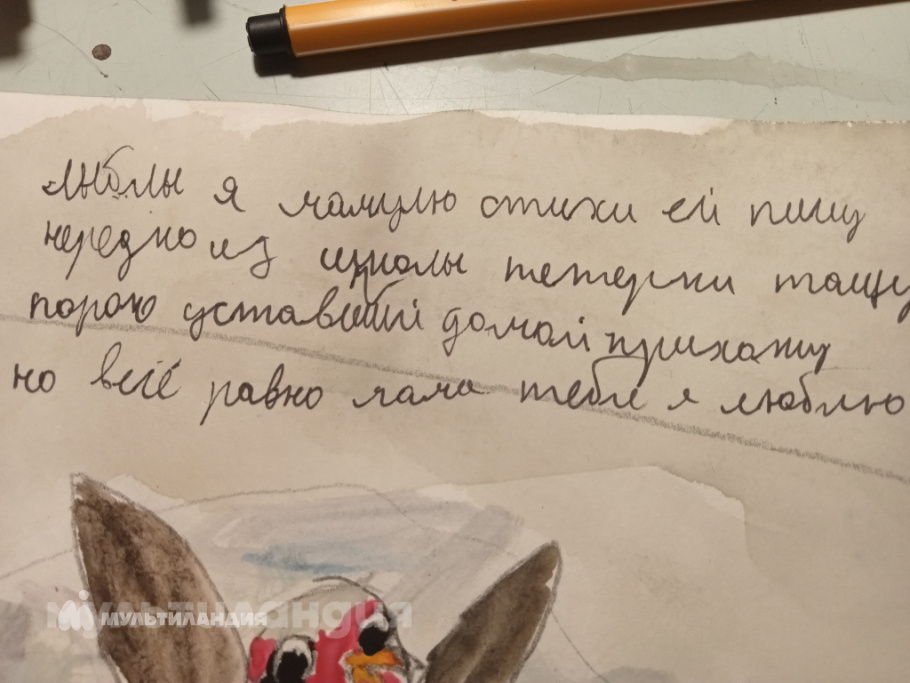 люблы я мамулю стихи ей пишу
нередко из школы петерки тащу
порою уставший домой прихожу
но всё равно мама тебя я люблю
мультиландия
МУЛЬТИЛАНДИЯ